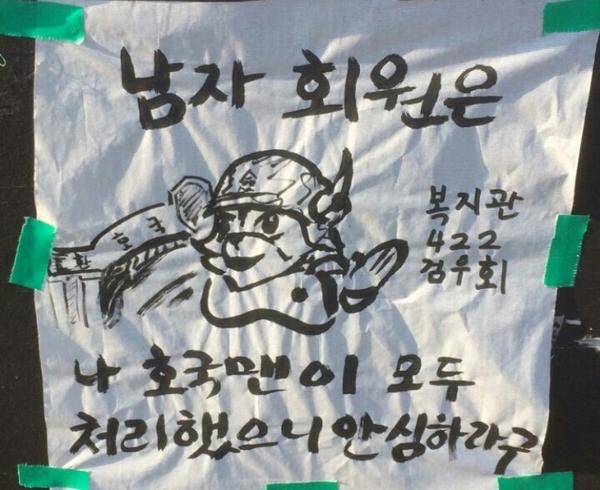 남자 회원은
복지관
422
검우회
호국
나 호국맨이 모두
처리했으니 안심하라구